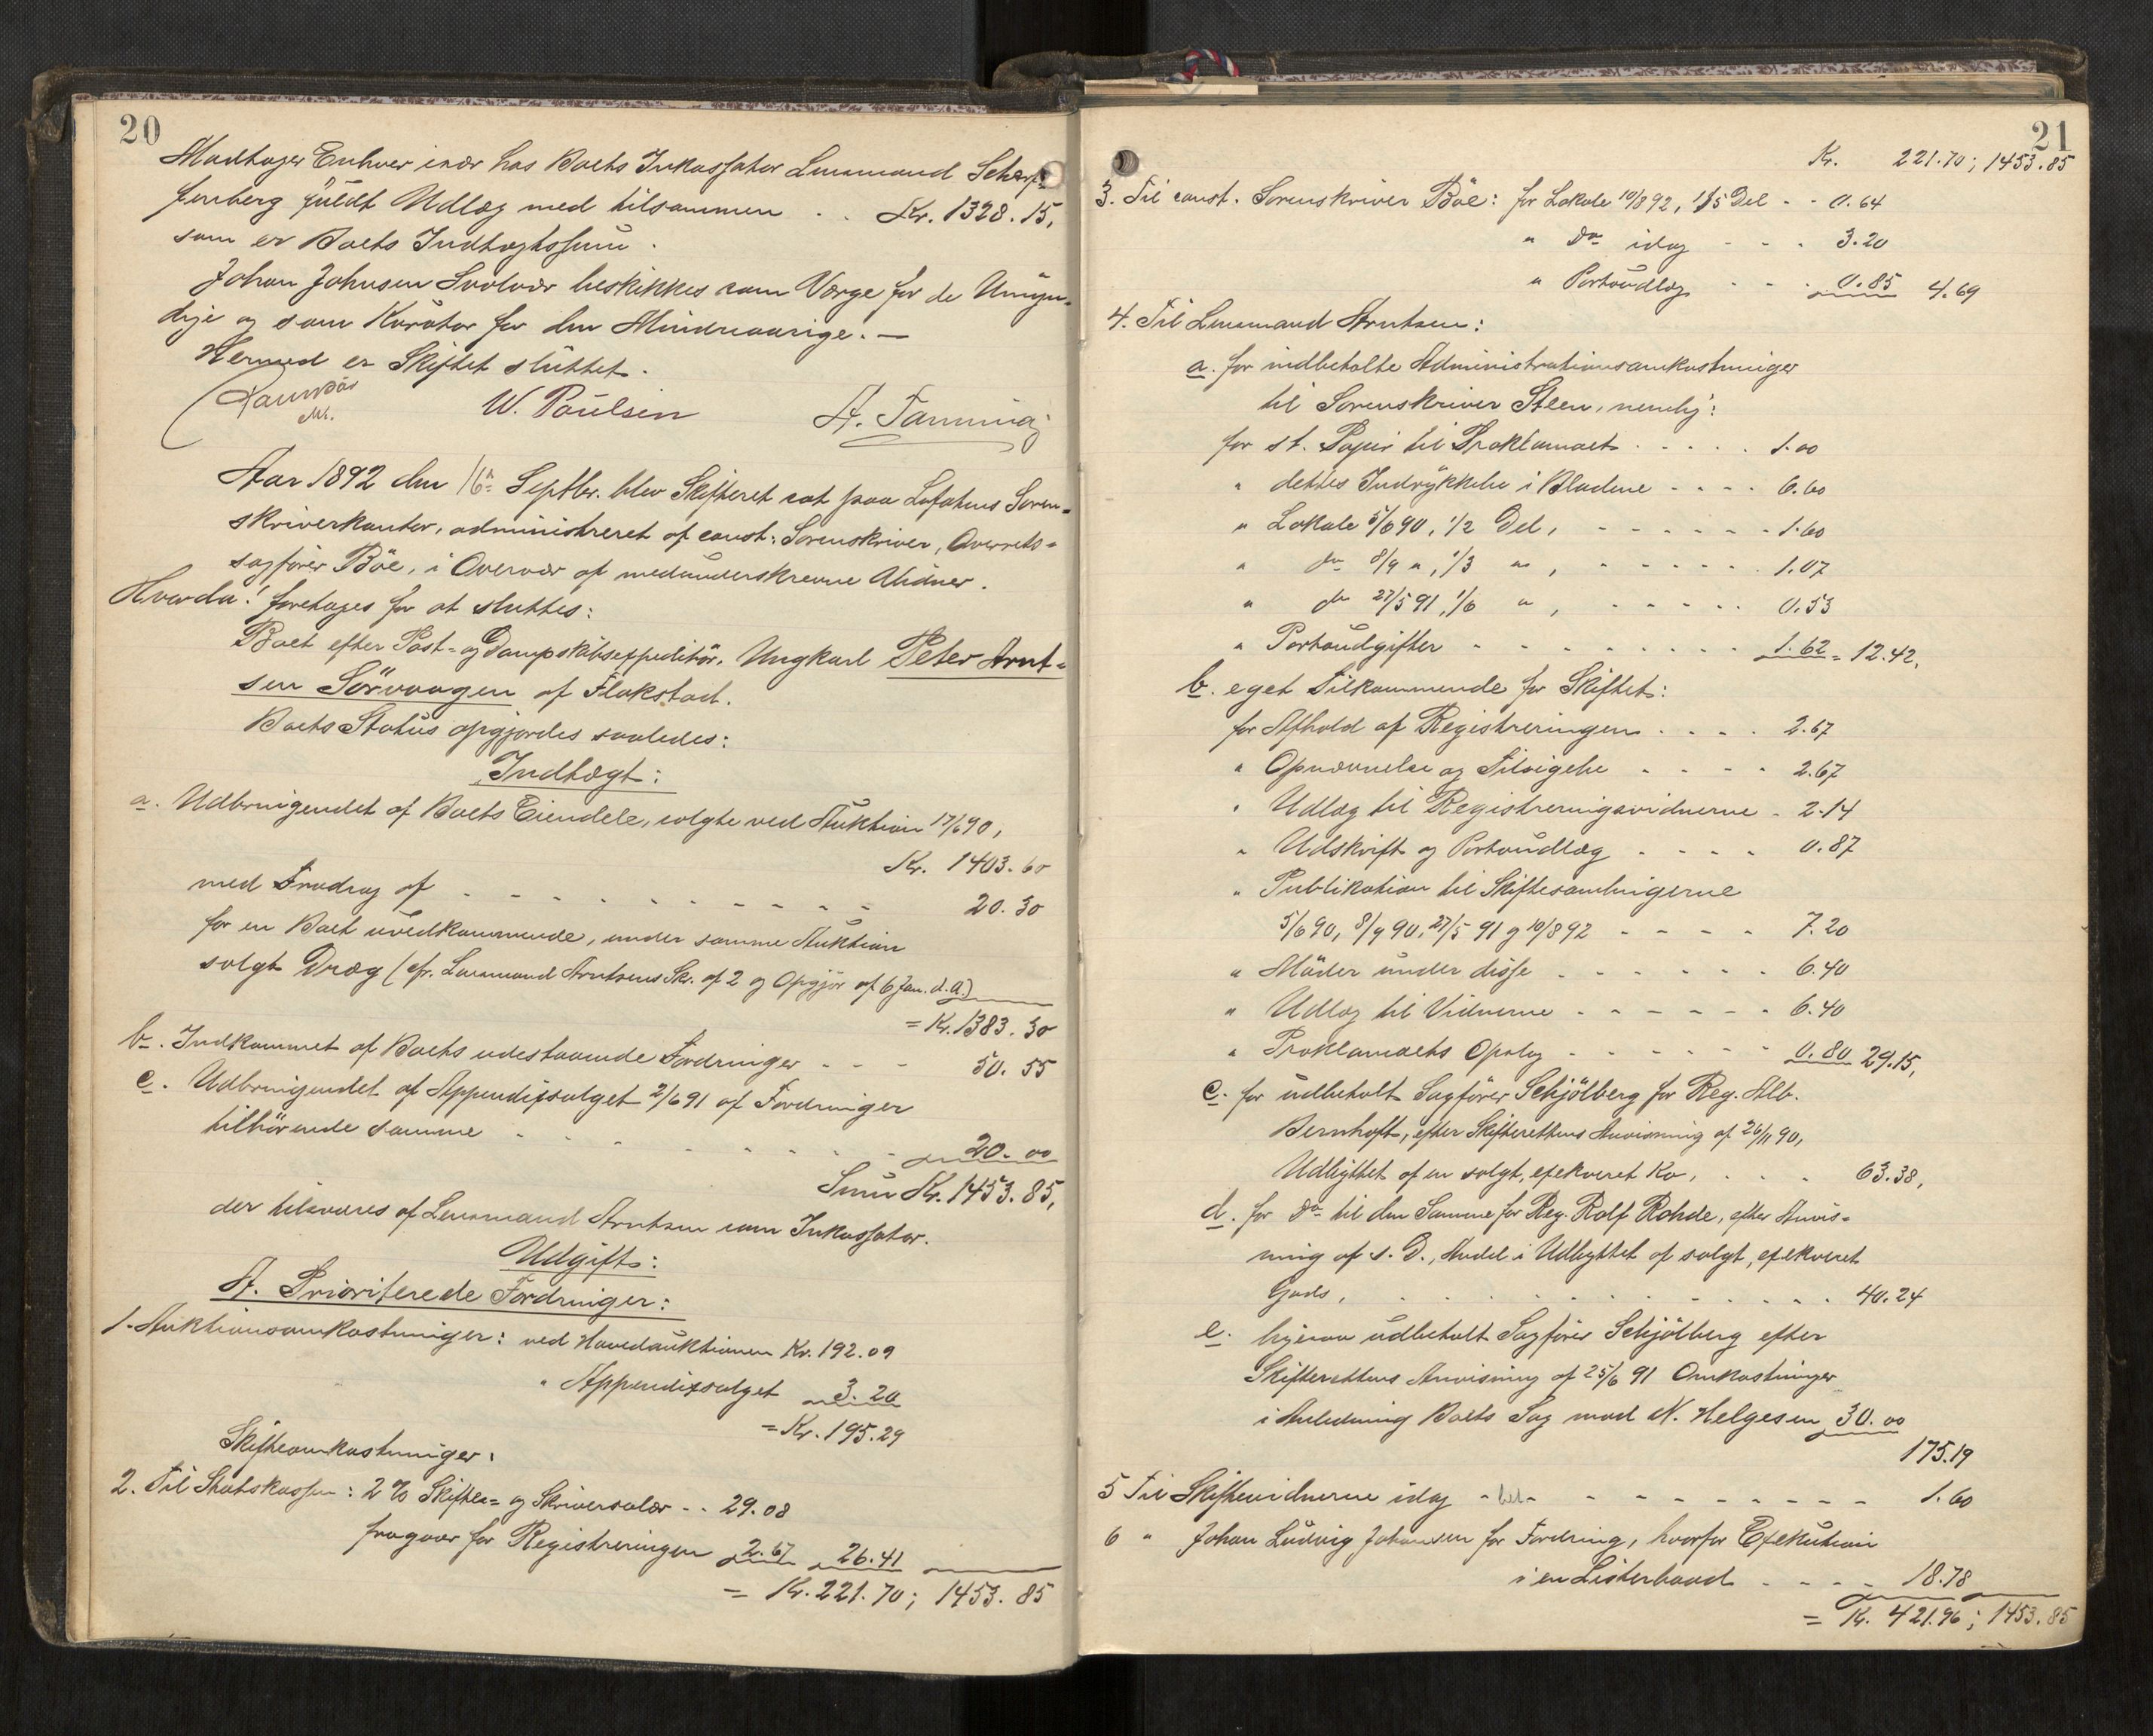 20
Modtager Enhver især hos Boets Inkassator Lensmand Scharf-
fenberg fuldt Udlæg med tilsammen . . Kr. 1328.15,
som er Boets Indtægtssum.
Johan Johnsen Svolvær beskikkes som Værge for de Umyn-
dige og som Kurator for den Mindreaarige. —
Hermed er Skiftet sluttet.
W. Paulsen A. Tanning
Aar 1892 den 16de Septbr. blev Skifteret sat paa Lofotens Soren-
skriverkontor, administreret af const. Sorenskriver, Overrets-
sagfører Böe, i Overvær af medunderskrevne Vidner.
Hvorda! foretages for at sluttes:
Boet efter Post- og Dampskibsexpeditör, Ungkarl Peter Arnt-
sen Sörvaagen af Flakstad.
Boets Status opgjordes saaledes:
Indtægt:
a. Udbringendet af Boets Eiendele, solgte ved Auktion 17/6 90,
Kr. 1403.60
med Fradrag af - - - - 20.30
for en Boet uvedkommende, under samme Auktion
solgt Dræg (cfr. Lensmand Arntsens Skr. af 2 og Opgjör af 6 Jan. d.A.)
= Kr. 1383.30
b. Indkommet af Boets udestaaende Fordringer - - - 50.55
c. Udbringendet af Appendixsalget 2/6 91 af Fordringer
tilhörende samme - - - - 20.00
Sum Kr. 1453.85,
der tilsvares af Lensmand Arntsen som Inkassator.
Udgift:
A. Prioriterede Fordringer:
1. Auktionsomkostninger: ved Hovedauktionen Kr. 192.09
" Appendixsalget 3.20
= Kr. 195.29
Skifteomkostninger:
2. Til Statskassen: 2 % Skifte- og Skriversalær - - 29.08
fragaar for Registreringen 2.67 26.41
= Kr. 221.70; 1453.85
21
Kr. 221.70; 1453.85
3. Til const. Sorenskriver Böe: for Lokale 10/8 92, 1/5 Del - - 0.64
" Do idag - - - 3.20
" Portoudlæg - - - 0.85 4.69
4. Til Lensmand Arntsen:
a. for indbetalte Administrationsomkostninger
til Sorenskriver Steen, nemlig:
for st. Papir til Proklamaet . . . . . 1.00
" dettes Indrykkelse i Bladene - - - - 6.60
" Lokale 5/6 90, 1/2 Del, - - - - - - 1.60
" do 8/9 ", 1/3 ", - - - - - - 1.07
" do 27/5 91, 1/6 ", - - - - - 0.53
" Portoudgifter - - - - - - - - 1.62 = 12.42,
b. eget Tilkommende for Skiftet:
for Afhold af Registreringen . . . . 2.67
" Opnævnelse og Tilsigelse - - - - 2.67
" Udlæg til Registreringsvidnerne - 2.14
" Udskrift og Portoudlæg - - - - 0.87
" Publikation til Skiftesamlingerne
5/6 90, 8/9 90, 27/5 91 og 10/8 92 - - - - 7.20
" Möder under disse - - - - - - 6.40
" Udlæg til Vidnerne - - - - - - 6.40
" Proklamaets Opslag - - - - - - 0.80 29.15,
c. for udbetalt Sagförer Schjölberg for Reg. Alb.
Bernhoft, efter Skifterettens Anvisning af 26/11 90,
Udbyttet af en solgt, exekveret Ko, . . . 63.38,
d. for Do til den Samme for Reg. Rolf Rohde, efter Anvis-
ning af s. D., Andel i Udbyttet af solgt, exekveret
Gods, . . . . . . . . . 40.24
e. ligesaa udbetalt Sagförer Schjölberg efter
Skifterettens Anvisning af 25/6 91 Omkostninger
i Anledning Boets Sag mod N. Helgesen 30.00
175.19
5 Til Skiftevidnerne idag - - - - - - - - - - 1.60
6 " Johan Ludvig Johansen for Fordring, hvorfor Exekution
i en Listerbaad - - - - 18.78
= Kr. 421.96; 1453.85